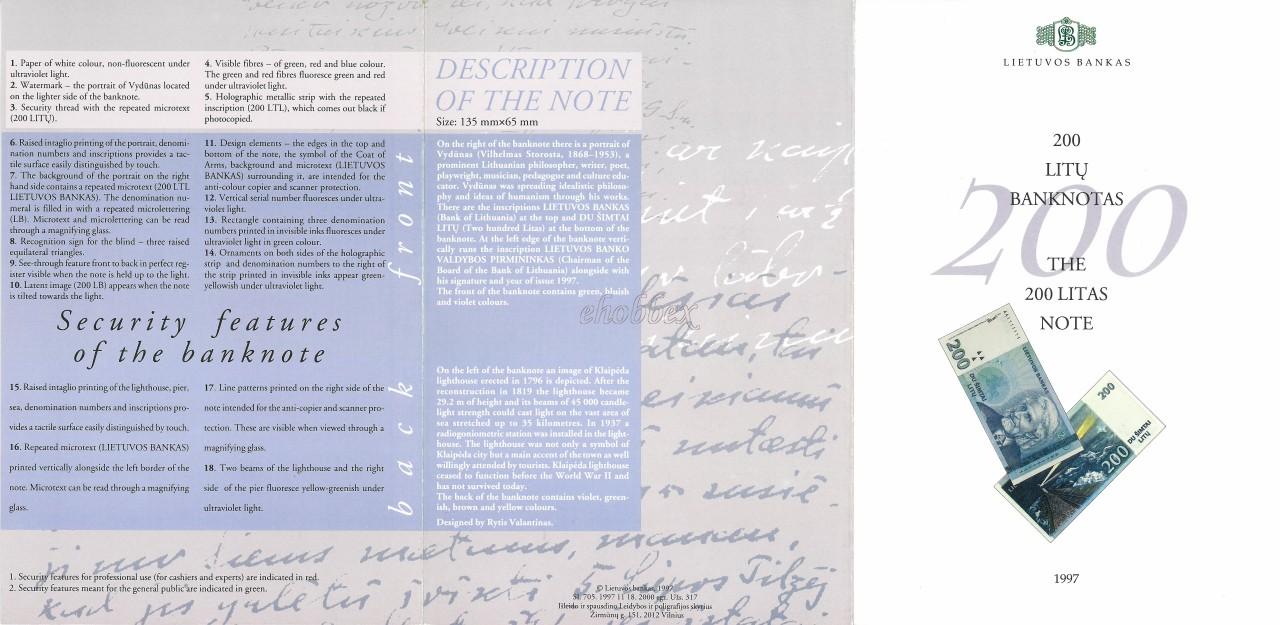 1. Paper of white colour, non-fluorescent under
ultraviolet light.
2. Watermark – the portrait of Vydūnas located
on the lighter side of the banknote.
3. Security thread with the repeated microtext
(200 LITŲ).
4. Visible fibres – of green, red and blue colour.
The green and red fibres fluoresce green and red
under ultraviolet light.
5. Holographic metallic strip with the repeated
inscription (200 LTL), which comes out black if
photocopied.
6. Raised intaglio printing of the portrait, denomi-
nation numbers and inscriptions provides a tac-
tile surface easily distinguished by touch.
7. The background of the portrait on the right
hand side contains a repeated microtext (200 LTL
LIETUVOS BANKAS). The denomination nu-
meral is filled in with a repeated microlettering
(LB). Microtext and microlettering can be read
through a magnifying glass.
8. Recognition sign for the blind – three raised
equilateral triangles.
9. See-through feature front to back in perfect reg-
ister visible when the note is held up to the light.
10. Latent image (200 LB) appears when the note
is tilted towards the light.
11. Design elements – the edges in the top and
bottom of the note, the symbol of the Coat of
Arms, background and microtext (LIETUVOS
BANKAS) surrounding it, are intended for the
anti-colour copier and scanner protection.
12. Vertical serial number fluoresces under ultra-
violet light.
13. Rectangle containing three denomination
numbers printed in invisible inks fluoresces under
ultraviolet light in green colour.
14. Ornaments on both sides of the holographic
strip and denomination numbers to the right of
the strip printed in invisible inks appear green-
yellowish under ultraviolet light.
front
Security features
of the banknote
15. Raised intaglio printing of the lighthouse, pier,
sea, denomination numbers and inscriptions pro-
vides a tactile surface easily distinguished by touch.
16. Repeated microtext (LIETUVOS BANKAS)
printed vertically alongside the left border of the
note. Microtext can be read through a magnifying
glass.
17. Line patterns printed on the right side of the
note intended for the anti-copier and scanner pro-
tection. These are visible when viewed through a
magnifying glass.
18. Two beams of the lighthouse and the right
side of the pier fluoresce yellow-greenish under
ultraviolet light.
back
1. Security features for professional use (for cashiers and experts) are indicated in red.
2. Security features meant for the general public are indicated in green.
DESCRIPTION
OF THE NOTE
Size: 135 mm×65 mm
On the right of the banknote there is a portrait of
Vydūnas (Vilhelmas Storosta, 1868–1953), a
prominent Lithuanian philosopher, writer, poet,
playwright, musician, pedagogue and culture edu-
cator. Vydūnas was spreading idealistic philoso-
phy and ideas of humanism through his works.
There are the inscriptions LIETUVOS BANKAS
(Bank of Lithuania) at the top and DU ŠIMTAI
LITŲ (Two hundred Litas) at the bottom of the
banknote. At the left edge of the banknote verti-
cally runs the inscription LIETUVOS BANKO
VALDYBOS PIRMININKAS (Chairman of the
Board of the Bank of Lithuania) alongside with
his signature and year of issue 1997.
The front of the banknote contains green, bluish
and violet colours.
ehobbex
On the left of the banknote an image of Klaipėda
lighthouse erected in 1796 is depicted. After the
reconstruction in 1819 the lighthouse became
29.2 m of height and its beams of 45 000 candle-
light strength could cast light on the vast area of
sea stretched up to 35 kilometres. In 1937 a
radiogoniometric station was installed in the light-
house. The lighthouse was not only a symbol of
Klaipėda city but a main accent of the town as well
willingly attended by tourists. Klaipėda lighthouse
ceased to function before the World War II and
has not survived today.
The back of the banknote contains violet, green-
ish, brown and yellow colours.
Designed by Rytis Valantinas.
© Lietuvos bankas, 1997
SL 705. 1997 11 18. 2000 egz. Užs. 317
Išleido ir spausdino Leidybos ir poligrafijos skyrius
Žirmūnų g. 151, 2012 Vilnius
LIETUVOS BANKAS
200
200
LITŲ
BANKNOTAS
THE
200 LITAS
NOTE
200
DU ŠIMTAI
LITŲ
LIETUVOS BANKAS
200
DU ŠIMTAI
LITŲ
200
1997